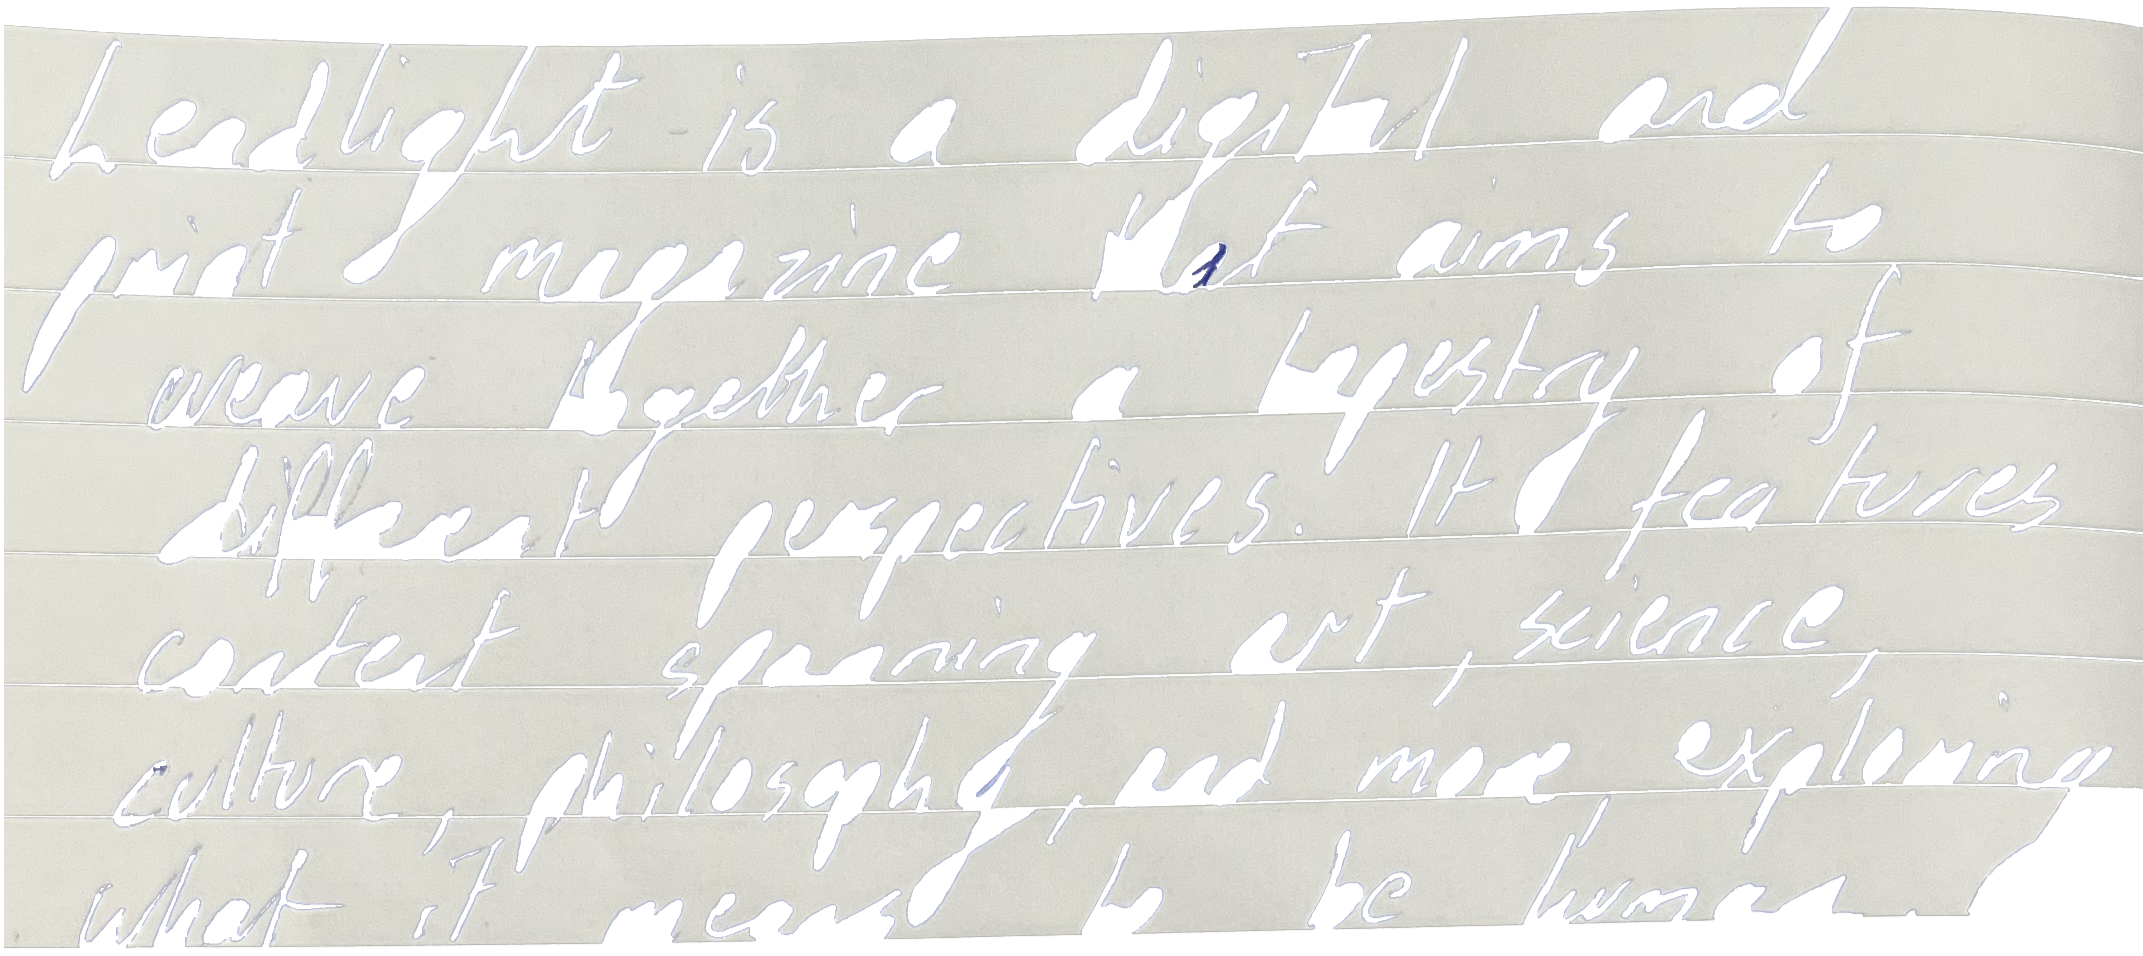 Leadlight is a digital and
print magazine that aims to
weave together a tapestry of
different perspectives. It features
content spanning art, science,
culture, philosophy, and more exploring
what it means to be human